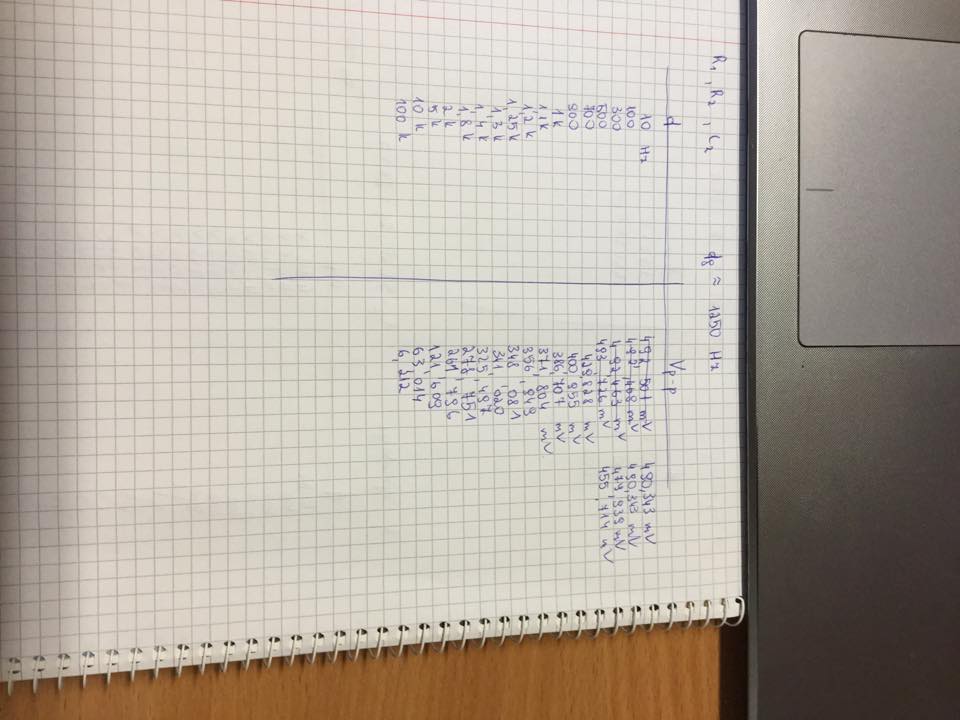 R1, R2, C2 fg ≈ 1250 Hz
f Vp-p
10 Hz 492,501 mV 480,343 mV
100 492,468 mV 480,343 mV
300 492,463 mV 474,939 mV
500 493,726 mV 455,414 mV
700 429,828 mV
900 400,955 mV
1 k 386,701 mV
1,1 k 371,804 mV
1,2 k 356,849
1,25 k 348,081
1,3 k 341,020
1,4 k 325,497
1,8 k 278,751
2 k 261,796
5 k 121,609
10 k 63,014
100 k 6,212